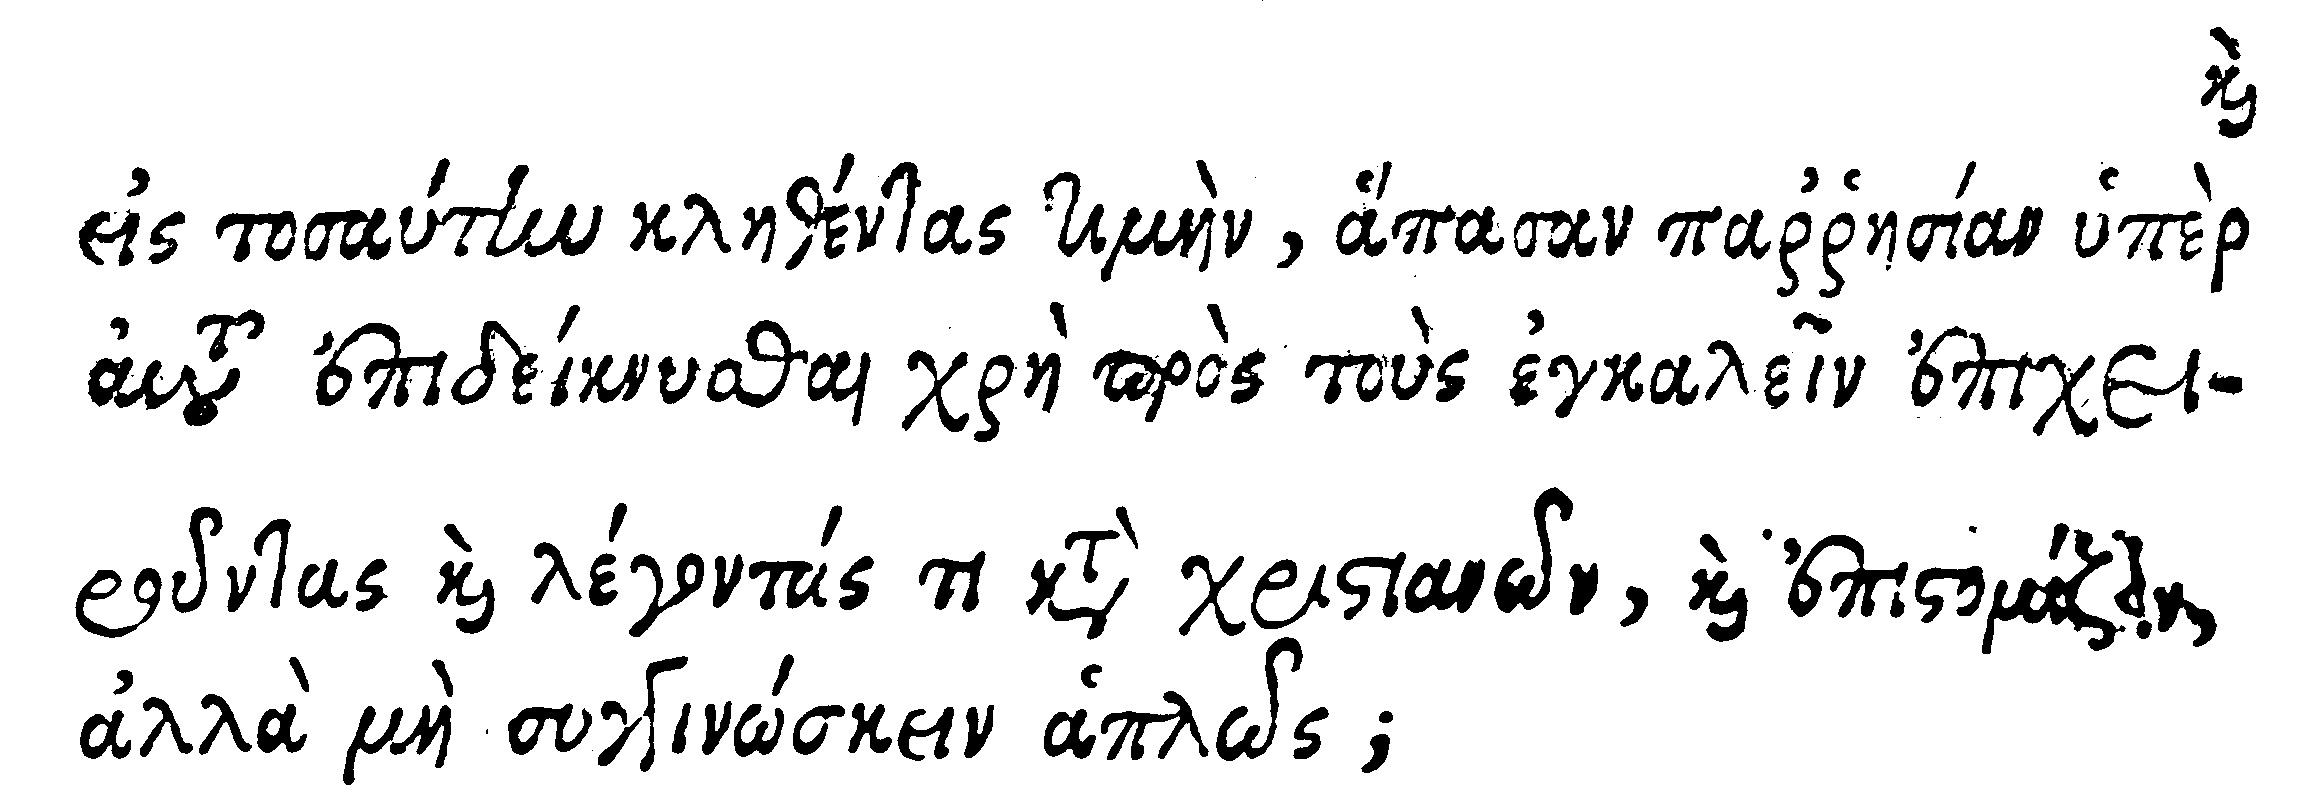 καὶ
εἰς τοσαύτην κληθέντας τιμὴν, ἅπασαν παῤῥησίαν ὑπὲρ
αὐτοῦ ἐπιδείκνυσθαι χρὴ πρὸς τοὺς ἐγκαλεῖν ἐπιχει-
ροῦντας καὶ λέγοντάς τι κατὰ χριστιανῶν, καὶ ἐπιστομίζειν,
ἀλλὰ μὴ συγγινώσκειν ἁπλῶς;